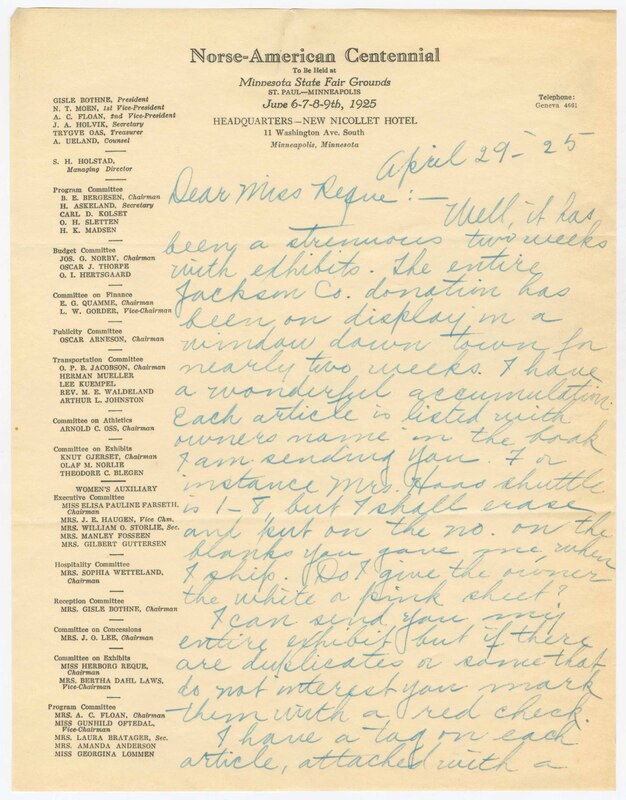 Norse-American Centennial
To Be Held at
Minnesota State Fair Grounds
ST. PAUL—MINNEAPOLIS
June 6-7-8-9th, 1925
HEADQUARTERS—NEW NICOLLET HOTEL
11 Washington Ave. South
Minneapolis, Minnesota
Telephone:
Geneva 4601
GISLE BOTHNE, President
N. T. MOEN, 1st Vice-President
A. C. FLOAN, 2nd Vice-President
J. A. HOLVIK, Secretary
TRYGVE OAS, Treasurer
A. UELAND, Counsel
S. H. HOLSTAD,
Managing Director
Program Committee
B. E. BERGESEN, Chairman
H. ASKELAND, Secretary
CARL D. KOLSET
O. H. SLETTEN
H. K. MADSEN
Budget Committee
JOS. G. NORBY, Chairman
OSCAR J. THORPE
O. I. HERTSGAARD
Committee on Finance
E. G. QUAMME, Chairman
L. W. GORDER, Vice-Chairman
Publicity Committee
OSCAR ARNESON, Chairman
Transportation Committee
O. P. B. JACOBSON, Chairman
HERMAN MUELLER
LEE KUEMPEL
REV. M. E. WALDELAND
ARTHUR L. JOHNSTON
Committee on Athletics
ARNOLD C. OSS, Chairman
Committee on Exhibits
KNUT GJERSET, Chairman
OLAF M. NORLIE
THEODORE C. BLEGEN
WOMEN'S AUXILIARY
Executive Committee
MISS ELISA PAULINE FARSETH,
Chairman
MRS. J. E. HAUGEN, Vice Chm.
MRS. WILLIAM O. STORLIE, Sec.
MRS. MANLEY FOSSEEN
MRS. GILBERT GUTTERSEN
Hospitality Committee
MRS. SOPHIA WETTELAND,
Chairman
Reception Committee
MRS. GISLE BOTHNE, Chairman
Committee on Concessions
MRS. J. O. LEE, Chairman
Committee on Exhibits
MISS HERBORG REQUE,
Chairman
MRS. BERTHA DAHL LAWS,
Vice-Chairman
Program Committee
MRS. A. C. FLOAN, Chairman
MISS GUNHILD OFTEDAL,
Vice-Chairman
MRS. LAURA BRATAGER, Sec.
MRS. AMANDA ANDERSON
MISS GEORGINA LOMMEN
April 29—'25
Dear Miss Reque:—
Well, it has
been a strenuous two weeks
with exhibits. The entire
Jackson Co. donation has
been on display in a
window down town for
nearly two weeks. I have
a wonderful accumulation.
Each article is listed with
owners name in the book
I am sending you. For
instance Mrs. Haas shuttle
is 1-8, but I shall erase
and put on the no. on the
blanks you gave me, when
I ship. Do I give the owner
the white or pink sheet?
I can send you my
entire exhibit but if there
are duplicates or some that
do not interest you mark
them with a red check.
I have a tag on each
article, attached with a